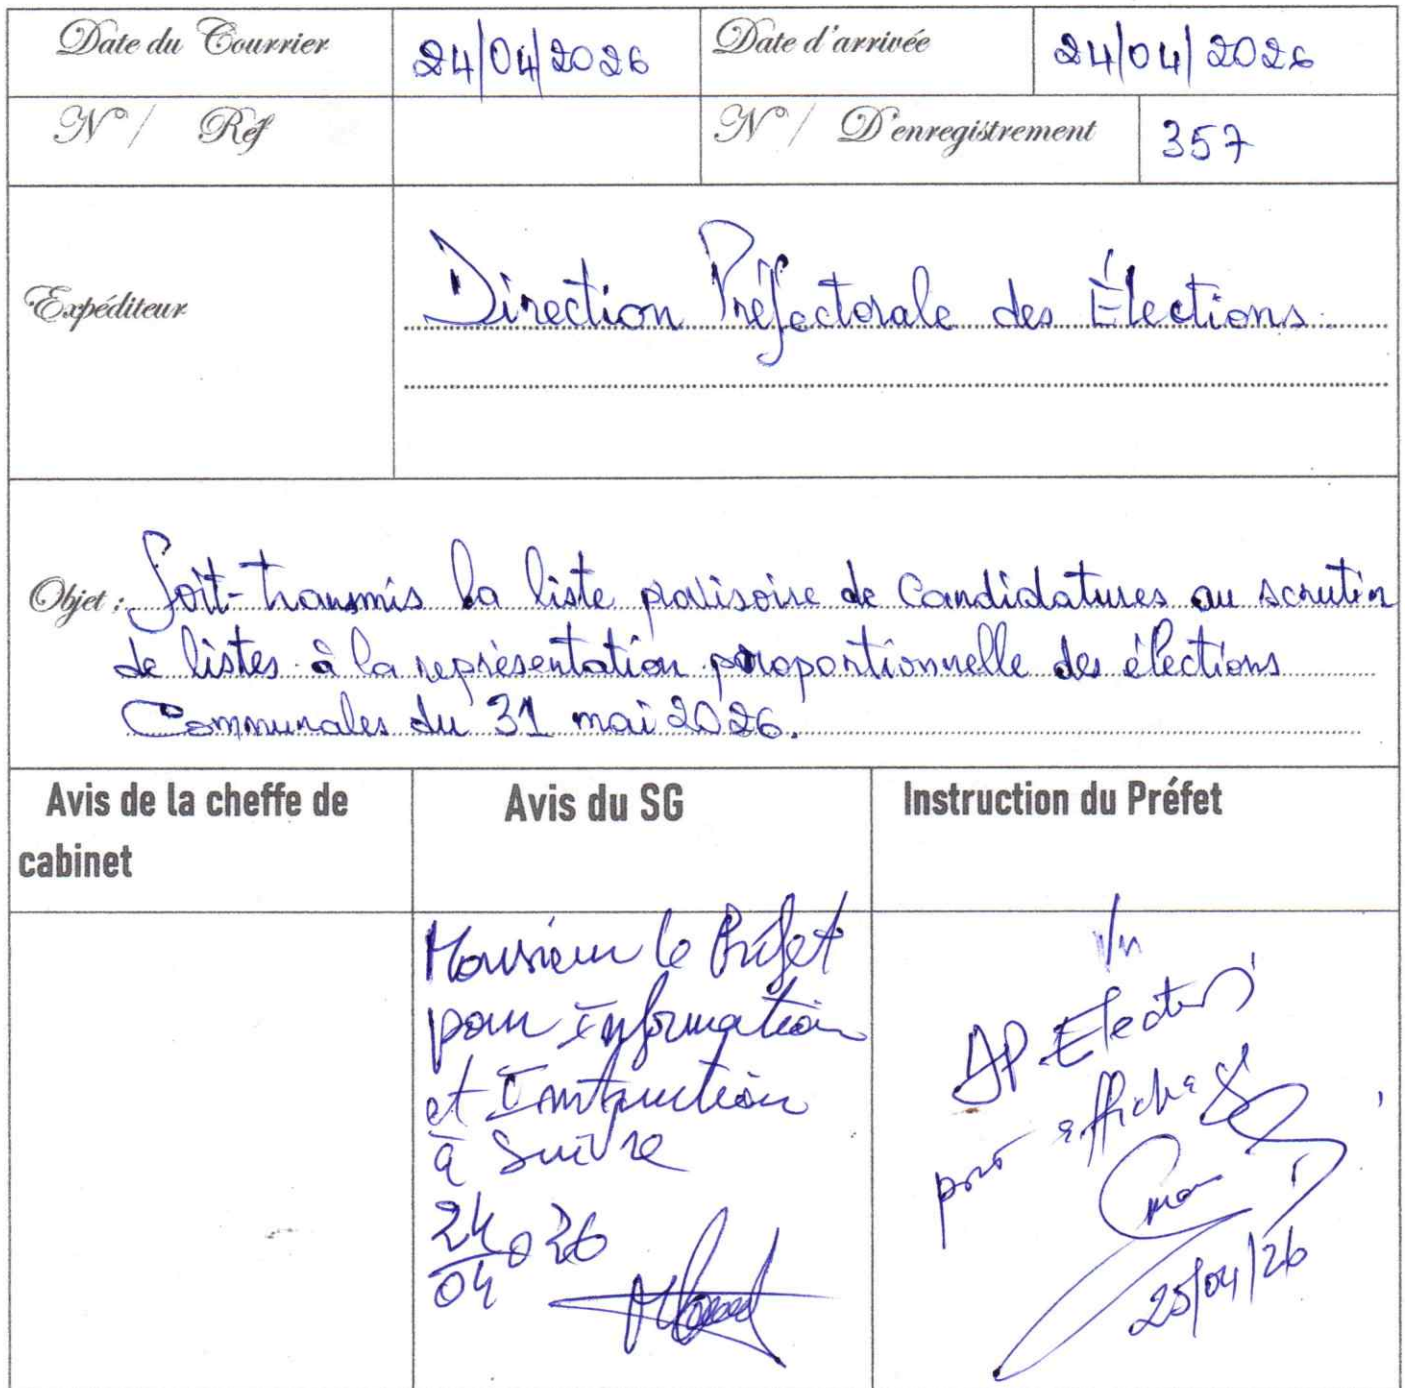 Date du Courrier 24/04/2026 Date d'arrivée 24/04/2026
N°/ Réf N°/ D'enregistrement 357
Expéditeur Direction Préfectorale des Élections
Objet : Soit-transmis la liste provisoire de candidatures au scrutin
de listes à la représentation proportionnelle des élections
Communales du 31 mai 2026.
Avis de la cheffe de
cabinet
Avis du SG
Instruction du Préfet
Monsieur le Préfet
pour Information
et Instruction
à Suivre
24
04 026
pour affichage
25/04/26